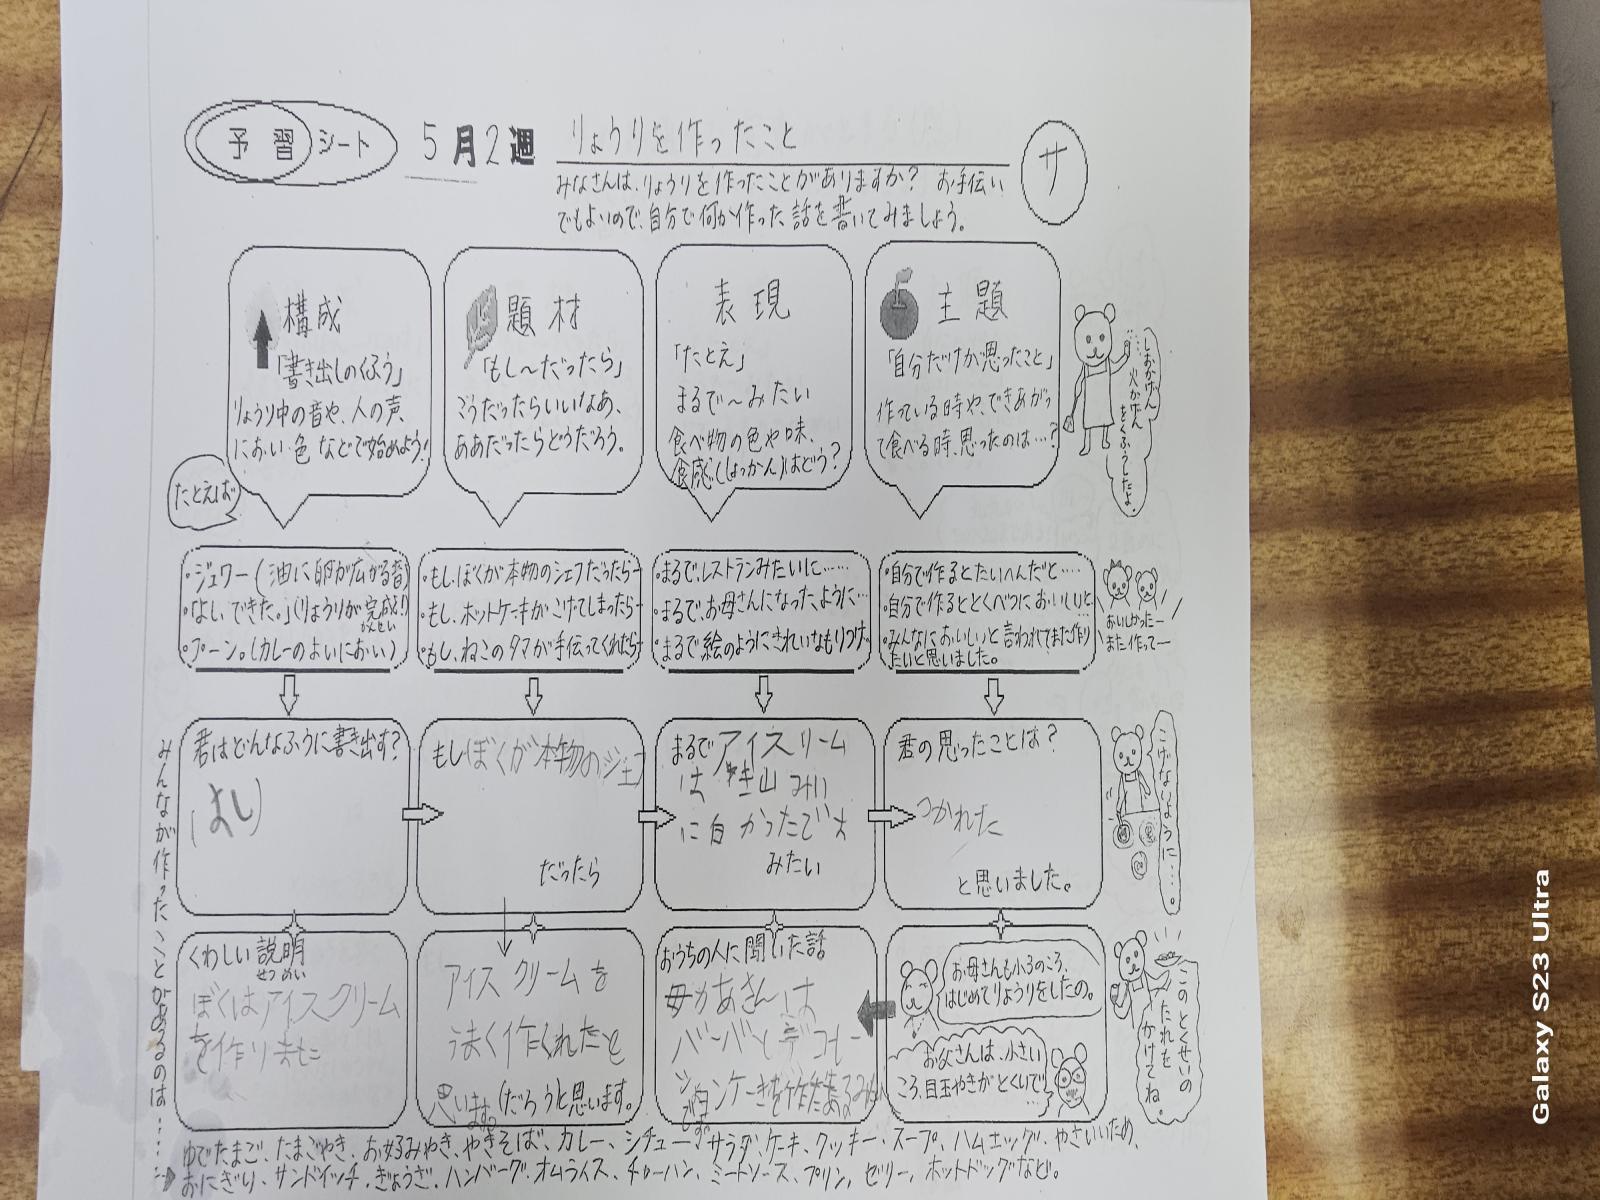 予習シート
5月2週
りょうりを作ったこと
サ
みなさんは、りょうりを作ったことがありますか? お手伝い
でもよいので、自分で何か作った話を書いてみましょう。
構成
「書き出しのくふう」
りょうり中の音や、人の声、
におい・色などで始めよう!
題材
「もし〜だったら」
こうだったらいいなあ、
ああだったらどうだろう。
表現
「たとえ」
まるで〜みたい
食べ物の色や味、
食感(しょっかん)はどう?
主題
「自分だけが思ったこと」
作っている時や、できあがっ
て食べる時、思ったのは…?
しおかげん
火かげん
をくふうしたよ。
たとえば
・ジュワー(油に卵が広がる音)
・「よし、できた。」(りょうりが完成!)
かんせい
・プーン。(カレーのよいにおい)
・もし、ぼくが本物のシェフだったら—
・もし、ホットケーキがこげてしまったら—
・もし、ねこのタマが手伝ってくれたら—
・まるで、レストランみたいに……
・まるで、お母さんになったように…
・まるで絵のようにきれいなもりつけ。
・自分で作るとたいへんだと……
・自分で作るととくべつにおいしいと
・みんなにおいしいと言われてまた作り
たいと思いました。
おいしかったー
また作ってー
君はどんなふうに書き出す?
(よし)
もしぼくが本物のシェフ
だったら
まるでアイスリーム
は 雪山 みい
に白かったでは
みたい
君の思ったことは?
つかれた
と思いました。
こげないように……。
みんなが作ったことがあるのは……
くわしい説明
せつめい
ぼくはアイスクリーム
を作りました
アイスクリームを
うまく作くれたと
思います。(だろうと思います。
おうちの人に聞いた話
母かあさんは
バーバとデコレー
ションケーキを作
お母さんも小3のころ、
はじめてりょうりをしたの。
お父さんは、小さい
ころ、目玉やきがとくいで…
このとくせいの
たれを
かけてね。
ゆでたまご、たまごやき、お好みやき、やきそば、カレー、シチュー、サラダ、ケーキ、クッキー、スープ、ハムエッグ、やさいいため、
おにぎり、サンドイッチ、ぎょうざ、ハンバーグ、オムライス、チャーハン、ミートソース、プリン、ゼリー、ホットドッグなど。
Galaxy S23 Ultra